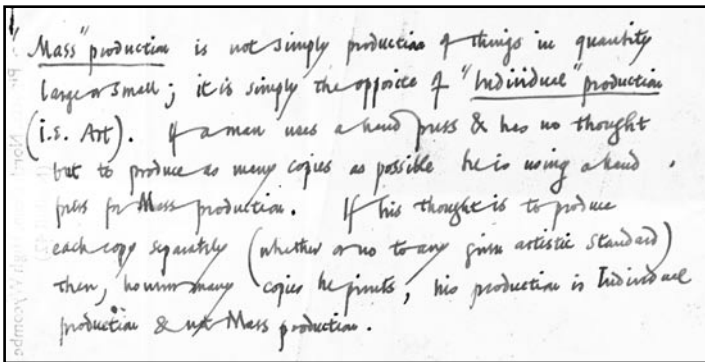 "Mass" production is not simply production of things in quantity
large or small; it is simply the opposite of "Individual" production
(i.e. Art). If a man uses a hand press & has no thought
but to produce as many copies as possible he is using a hand
press for Mass production. If his thought is to produce
each copy separately (whether or no to any given artistic standard)
then, however many copies he prints, his production is Individual
production & not Mass production.